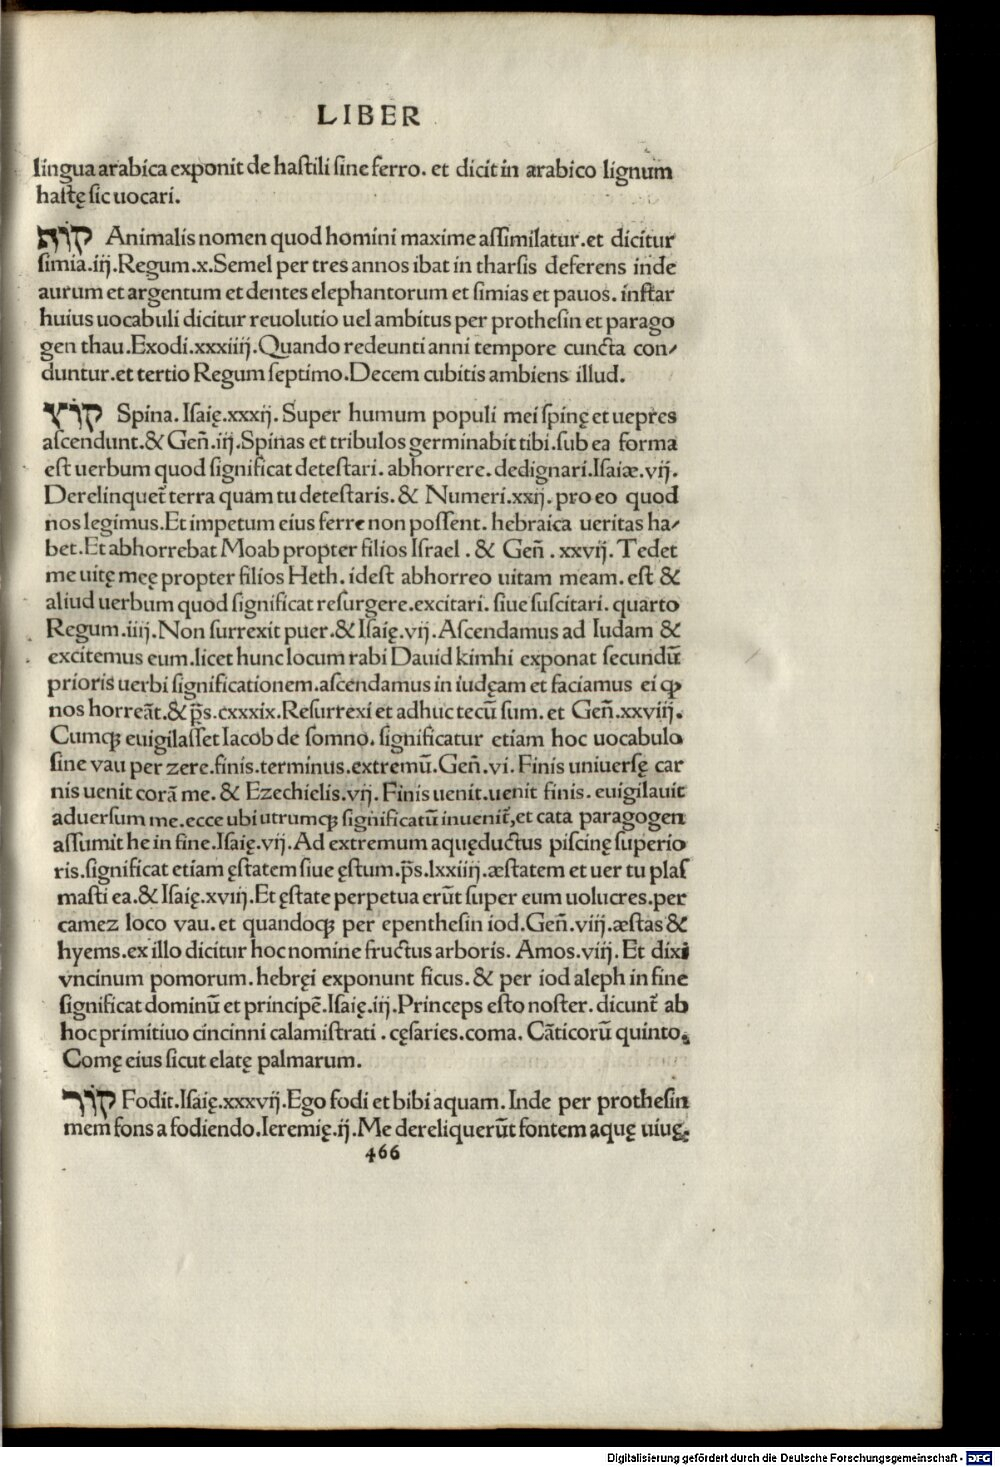 LIBER
lingua arabica exponit de hastili sine ferro. et dicit in arabico lignum
hastę sic uocari.
קוֹף Animalis nomen quod homini maxime assimilatur. et dicitur
simia.iij.Regum.x.Semel per tres annos ibat in tharsis deferens inde
aurum et argentum et dentes elephantorum et simias et pauos. instar
huius uocabuli dicitur reuolutio uel ambitus per prothesin et parago
gen thau.Exodi.xxxiiij.Quando redeunti anni tempore cuncta con⸗
duntur.et tertio Regum septimo.Decem cubitis ambiens illud.
קוֹץ Spina.Isaię.xxxij.Super humum populi mei spinę et uepres
ascendunt.& Geñ.iij.Spinas et tribulos germinabit tibi.sub ea forma
est uerbum quod significat detestari. abhorrere. dedignari.Isaiæ.vij.
Derelinquet̃ terra quam tu detestaris. & Numeri.xxij. pro eo quod
nos legimus.Et impetum eius ferre non possent. hebraica ueritas ha⸗
bet.Et abhorrebat Moab propter filios Israel . & Geñ . xxvij. Tedet
me uitę meę propter filios Heth. idest abhorreo uitam meam. est &
aliud uerbum quod significat resurgere.excitari. siue suscitari. quarto
Regum.iiij.Non surrexit puer.& Isaię.vij.Ascendamus ad Iudam &
excitemus eum.licet hunc locum rabi Dauid kimhi exponat secundũ
prioris uerbi significationem.ascendamus in iudęam et faciamus ei ꝙ
nos horreãt.& p̃s.cxxxix.Resurrexi et adhuc tecũ sum. et Geñ.xxviij.
Cumqꝫ euigilasset Iacob de somno. significatur etiam hoc uocabulo
sine vau per zere.finis.terminus.extremũ.Geñ.vi. Finis uniuersę car
nis uenit corã me. & Ezechielis.vij. Finis uenit.uenit finis. euigilauit
aduersum me.ecce ubi utrumqꝫ significatũ inuenit̃,et cata paragogen
assumit he in fine.Isaię.vij. Ad extremum aquęductus piscinę superio
ris.significat etiam ęstatem siue ęstum. p̃s.lxxiiij.æstatem et uer tu plas
masti ea.& Isaię.xviij.Et ęstate perpetua erũt super eum uolucres.per
camez loco vau. et quandoqꝫ per epenthesin iod.Geñ.viij.æstas &
hyems.ex illo dicitur hoc nomine fructus arboris. Amos.viij. Et dixi
vncinum pomorum. hebręi exponunt ficus. & per iod aleph in fine
significat dominũ et principẽ.Isaię.iij.Princeps esto noster. dicunt̃ ab
hoc primitiuo cincinni calamistrati . cęsaries.coma. Cãticorũ quinto.
Comę eius sicut elatę palmarum.
קוֹר Fodit.Isaię.xxxvij.Ego fodi et bibi aquam. Inde per prothesin
mem fons a fodiendo.Ieremię.ij.Me dereliquerũt fontem aquę uiuę.
466
Digitalisierung gefördert durch die Deutsche Forschungsgemeinschaft - DFG